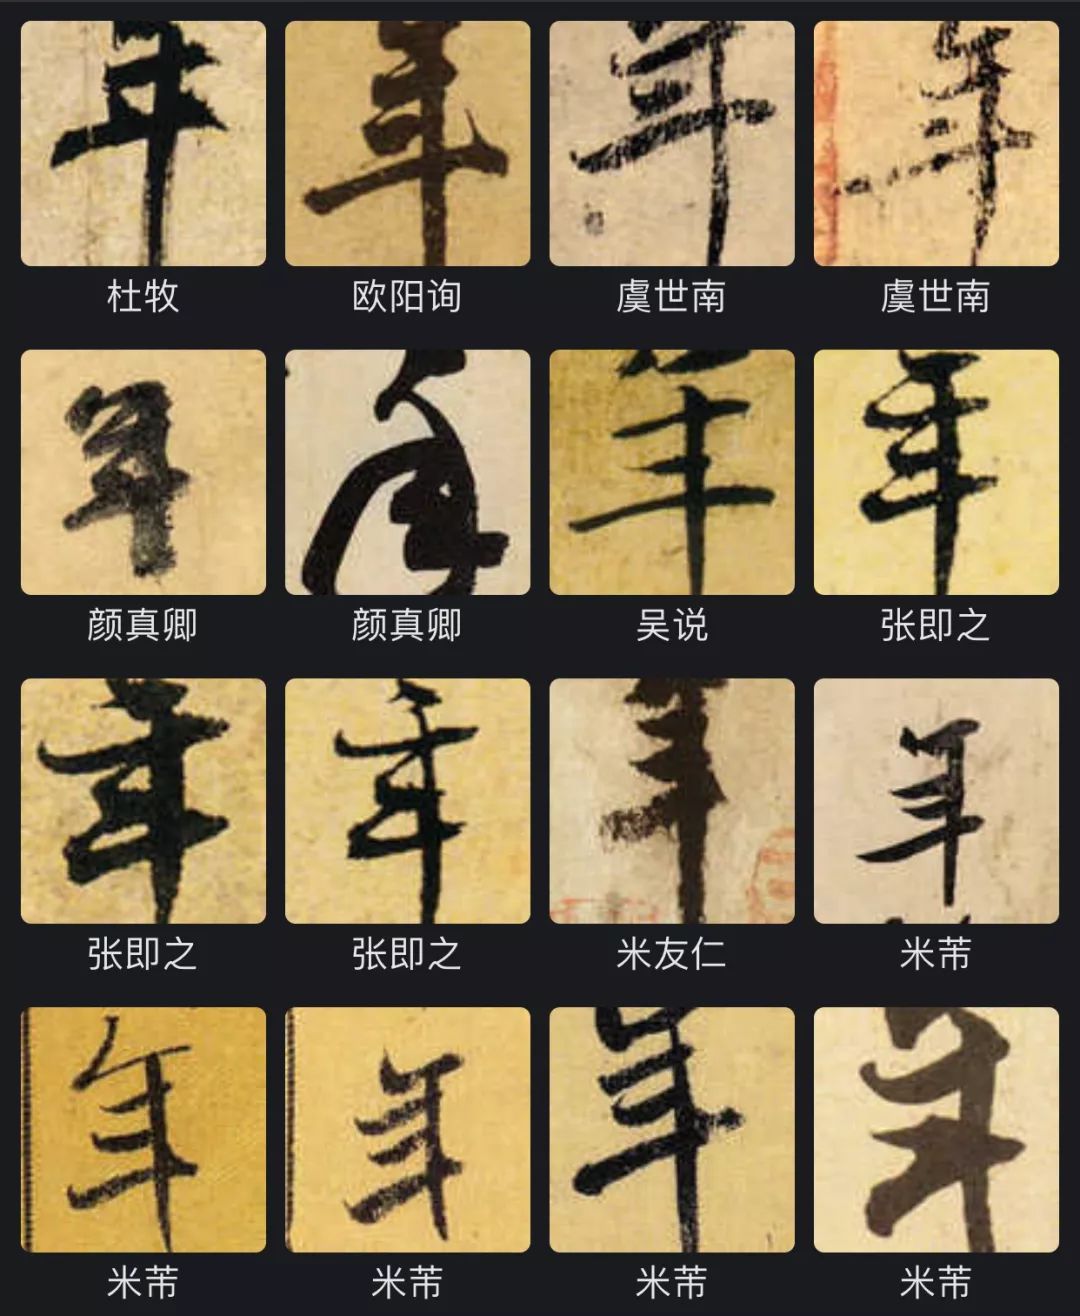 年 年 年 年
杜牧 欧阳询 虞世南 虞世南
年 年 年 年
颜真卿 颜真卿 吴说 张即之
年 年 年 年
张即之 张即之 米友仁 米芾
年 年 年 年
米芾 米芾 米芾 米芾